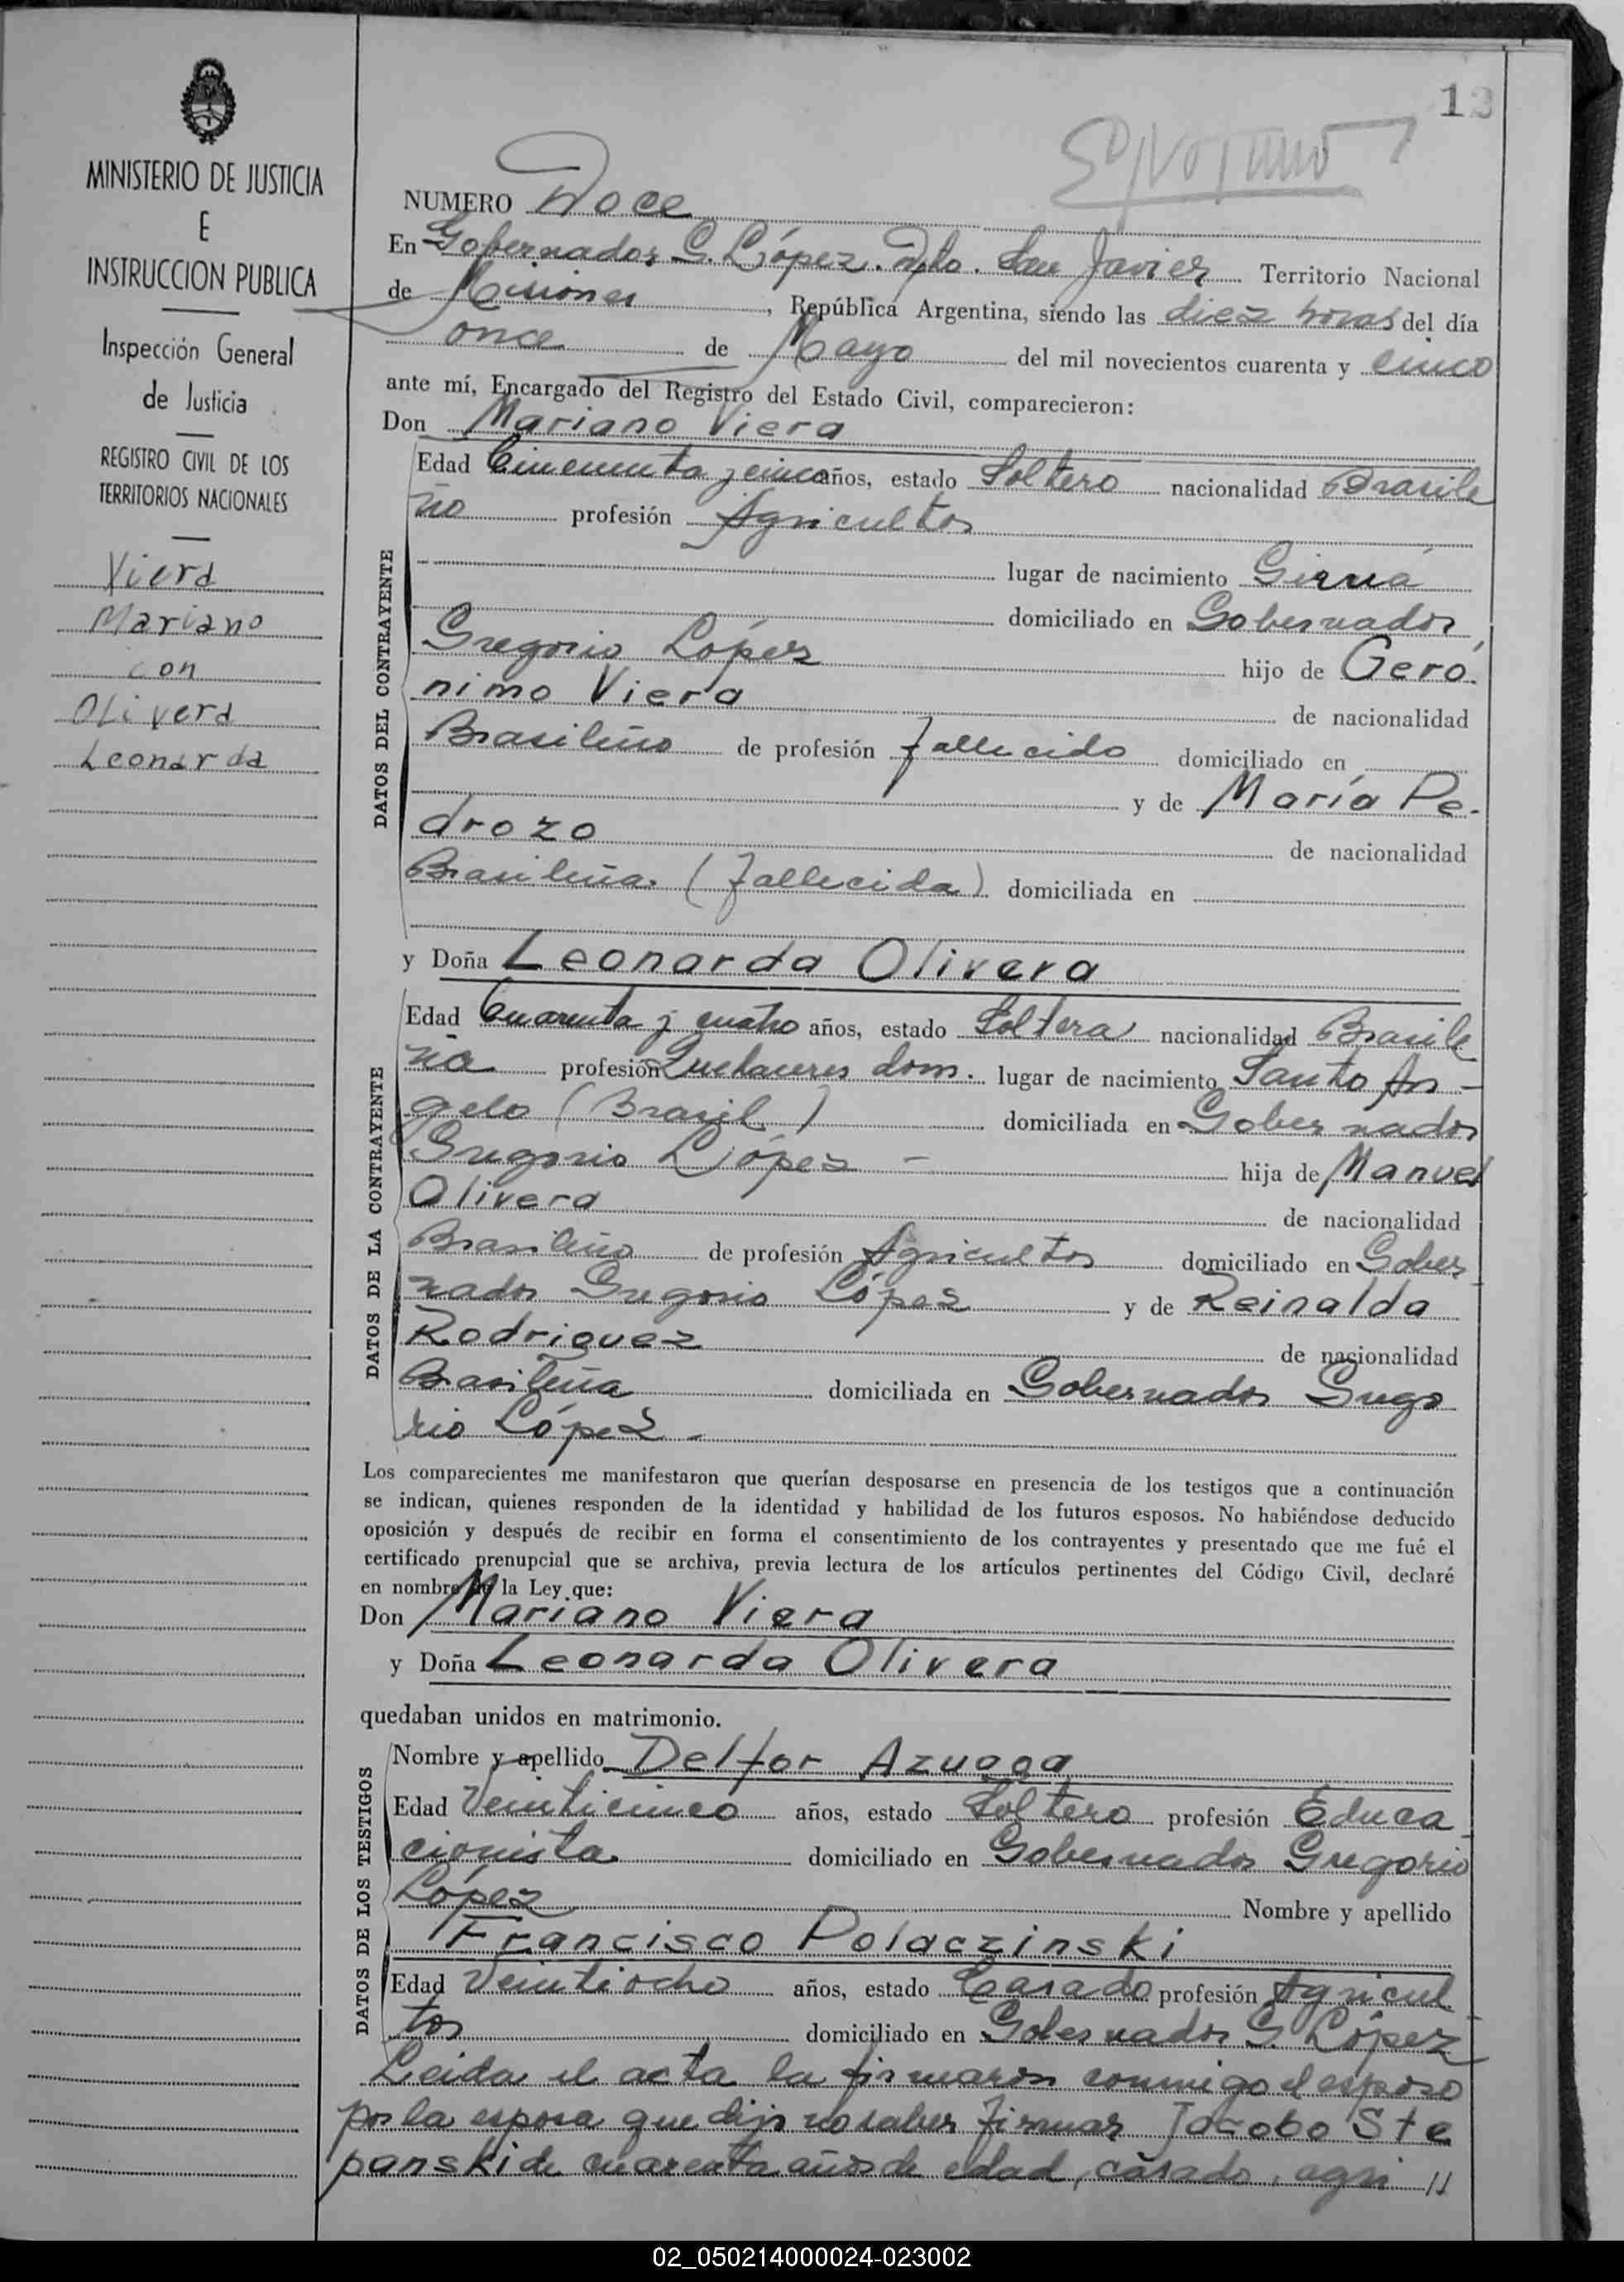 12
MINISTERIO DE JUSTICIA
E
INSTRUCCION PUBLICA
Inspección General
de Justicia
REGISTRO CIVIL DE LOS
TERRITORIOS NACIONALES
Viera
Mariano
con
Olivera
Leonarda
NUMERO Doce
En Gobernador G. López. Dpto. San Javier Territorio Nacional
de Misiones, República Argentina, siendo las diez horas del día
once de Mayo del mil novecientos cuarenta y cinco
ante mí, Encargado del Registro del Estado Civil, comparecieron:
Don Mariano Viera
DATOS DEL CONTRAYENTE
Edad Cincuenta y cinco años, estado Soltero nacionalidad Brasile
ño profesión Agricultor
lugar de nacimiento Giruá
domiciliado en Gobernador
Gregorio López hijo de Geró-
nimo Viera de nacionalidad
Brasileño de profesión fallecido domiciliado en
y de María Pe-
drozo de nacionalidad
Brasileña. (fallecida) domiciliada en
y Doña Leonarda Olivera
DATOS DE LA CONTRAYENTE
Edad Cuarenta y cuatro años, estado Soltera nacionalidad Brasile
ña profesión Quehaceres dom. lugar de nacimiento Santo An-
gelo (Brazil) domiciliada en Gobernador
Gregorio López - hija de Manuel
Olivera de nacionalidad
Brasileño de profesión Agricultor domiciliado en Gober
nador Gregorio López y de Reinalda
Rodriguez de nacionalidad
Brasileña domiciliada en Gobernador Grego
rio López -
Los comparecientes me manifestaron que querían desposarse en presencia de los testigos que a continuación
se indican, quienes responden de la identidad y habilidad de los futuros esposos. No habiéndose deducido
oposición y después de recibir en forma el consentimiento de los contrayentes y presentado que me fué el
certificado prenupcial que se archiva, previa lectura de los artículos pertinentes del Código Civil, declaré
en nombre de la Ley que:
Don Mariano Viera
y Doña Leonarda Olivera
quedaban unidos en matrimonio.
DATOS DE LOS TESTIGOS
Nombre y apellido Delfor Azuaga
Edad Veinticinco años, estado Soltero profesión Educa
cionista domiciliado en Gobernador Gregorio
López Nombre y apellido
Francisco Polaczinski
Edad Veintiocho años, estado Casado profesión Agricul
tor domiciliado en Gobernador G. López
Leida el acta la firmaron conmigo el esposo
por la esposa que dijo no saber firmar Jacobo Ste
panski de cuarenta años de edad, casado, agri //
02_050214000024-023002